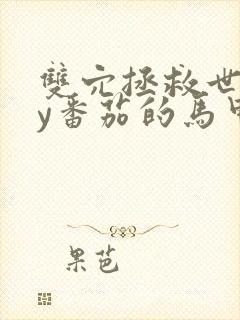 雙穴拯救世
y番茄的馬甲
果芭